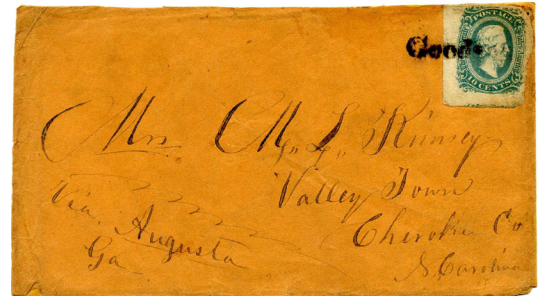 POSTAGE
Goods
10 CENTS
Mrs M. L. Kimsey
Valley Town
Cherokee Co
N. Carolina
Via. Augusta
Ga